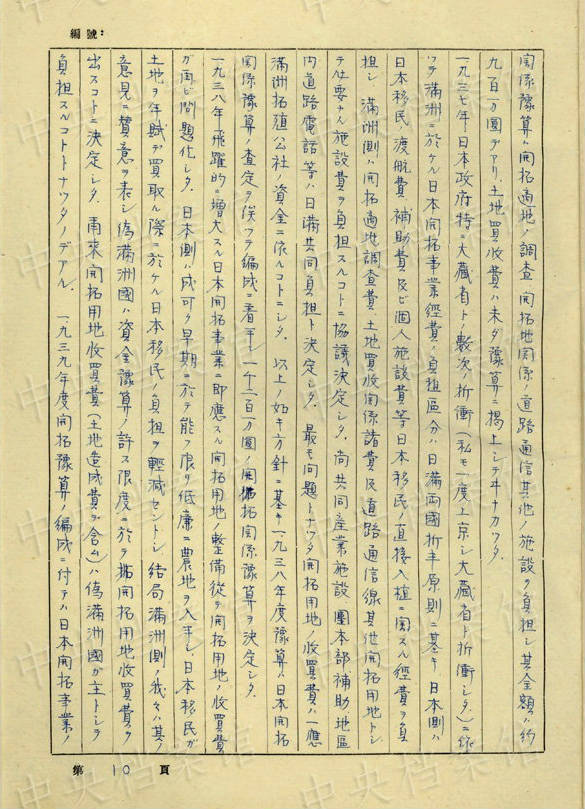 編號:
関係豫算ハ開拓適地ノ調査、開拓地関係ノ道路通信其他ノ施設ヲ負担シ其全額ハ約
九百万圓デアリ、土地買收費ハ未ダ豫算ニ掲上シテヰナカツタ。
一九三七年日本政府特ニ大藏省トノ數次ノ折衝(私モ一度上京シ大藏省ト折衝シタ)ニ依
ツテ満洲ニ於ケル日本開拓事業経費ノ負担区分ハ日満両國折半原則ニ基キ日本側ハ
日本移民ノ渡航費、補助費及ビ個人施設費等日本移民ノ直接入植ニ関スル経費ヲ負
担シ、満洲側ハ開拓適地調査費、土地買收関係諸費及道路通信線其他開拓用地トシ
テ必要ナル施設費ヲ負担スルコトニ協議決定シタ。尚共同産業施設、團本部補助、地區
内道路電話等ハ日満共同負担ト決定シタ。最モ問題トナツタ開拓用地ノ收買費ハ一應
満洲拓殖公社ノ資金ニ依ルコトニシタ。以上ノ如キ方針ニ基キ一九三八年度豫算ハ日本開拓
関係豫算ノ査定ヲ俟ツテ編成ニ着手シ、一千二百万圓ノ開拓関係豫算ヲ決定シタ。
一九三八年飛躍的ニ増大スル日本開拓事業ニ即應スル開拓用地ノ整備從テ開拓用地ノ收買費
ガ再ビ問題化シタ。日本側ハ成可ク早期ニ於テ能フ限リ低廉ニ農地ヲ入手シ、日本移民ガ
土地ヲ年賦デ買取ル際ニ於ケル日本移民ノ負担ヲ輕減セントシ、結局満洲側ノ我々ハ其ノ
意見ニ賛意ヲ表シ偽満洲國ハ資金豫算ノ許ス限度ニ於テ開拓用地收買費ヲ
出スコトニ決定シタ。爾來開拓用地收買費(土地造成費ヲ含ム)ハ偽満洲國ガ主トシテ
負担スルコトトナツタノデアル。一九三九年度開拓豫算ノ編成ニ付テハ日本開拓事業ノ
第 10 頁
中央档案馆